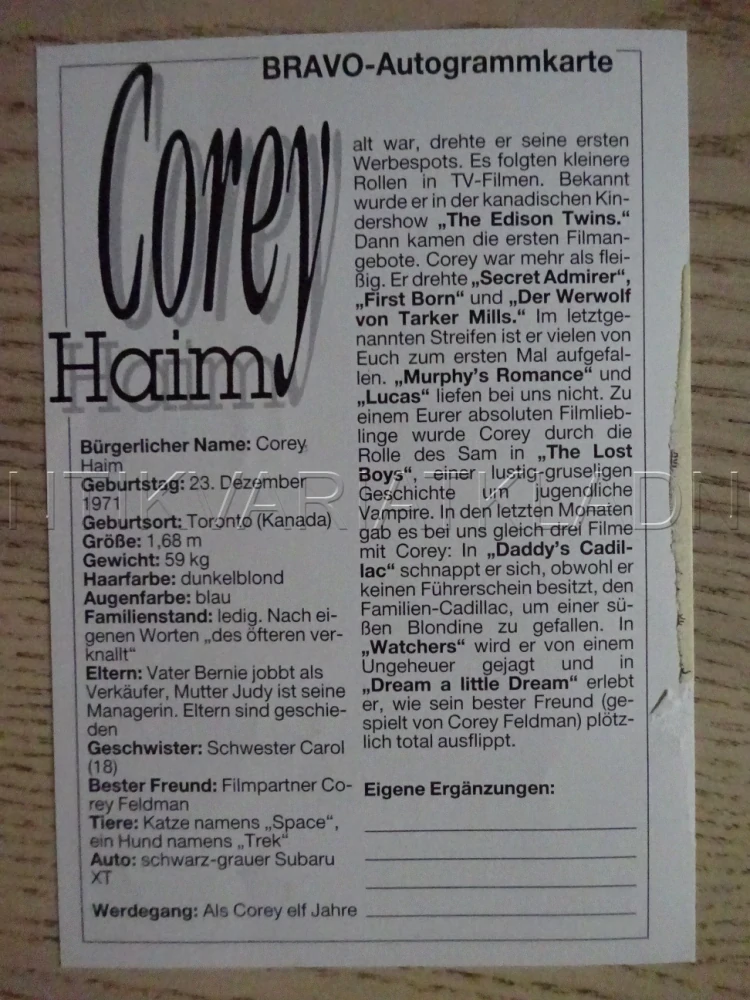 BRAVO-Autogrammkarte
Corey
Haim
Bürgerlicher Name: Corey
Haim
Geburtstag: 23. Dezember
1971
Geburtsort: Toronto (Kanada)
Größe: 1,68 m
Gewicht: 59 kg
Haarfarbe: dunkelblond
Augenfarbe: blau
Familienstand: ledig. Nach ei-
genen Worten „des öfteren ver-
knallt“
Eltern: Vater Bernie jobbt als
Verkäufer, Mutter Judy ist seine
Managerin. Eltern sind geschie-
den
Geschwister: Schwester Carol
(18)
Bester Freund: Filmpartner Co-
rey Feldman
Tiere: Katze namens „Space“,
ein Hund namens „Trek“
Auto: schwarz-grauer Subaru
XT
Werdegang: Als Corey elf Jahre
alt war, drehte er seine ersten
Werbespots. Es folgten kleinere
Rollen in TV-Filmen. Bekannt
wurde er in der kanadischen Kin-
dershow „The Edison Twins.“
Dann kamen die ersten Filman-
gebote. Corey war mehr als flei-
ßig. Er drehte „Secret Admirer“,
„First Born“ und „Der Werwolf
von Tarker Mills.“ Im letztge-
nannten Streifen ist er vielen von
Euch zum ersten Mal aufgefal-
len. „Murphy's Romance“ und
„Lucas“ liefen bei uns nicht. Zu
einem Eurer absoluten Filmlieb-
linge wurde Corey durch die
Rolle des Sam in „The Lost
Boys“, einer lustig-gruseligen
Geschichte um jugendliche
Vampire. In den letzten Monaten
gab es bei uns gleich drei Filme
mit Corey: In „Daddy's Cadil-
lac“ schnappt er sich, obwohl er
keinen Führerschein besitzt, den
Familien-Cadillac, um einer sü-
ßen Blondine zu gefallen. In
„Watchers“ wird er von einem
Ungeheuer gejagt und in
„Dream a little Dream“ erlebt
er, wie sein bester Freund (ge-
spielt von Corey Feldman) plötz-
lich total ausflippt.
Eigene Ergänzungen: